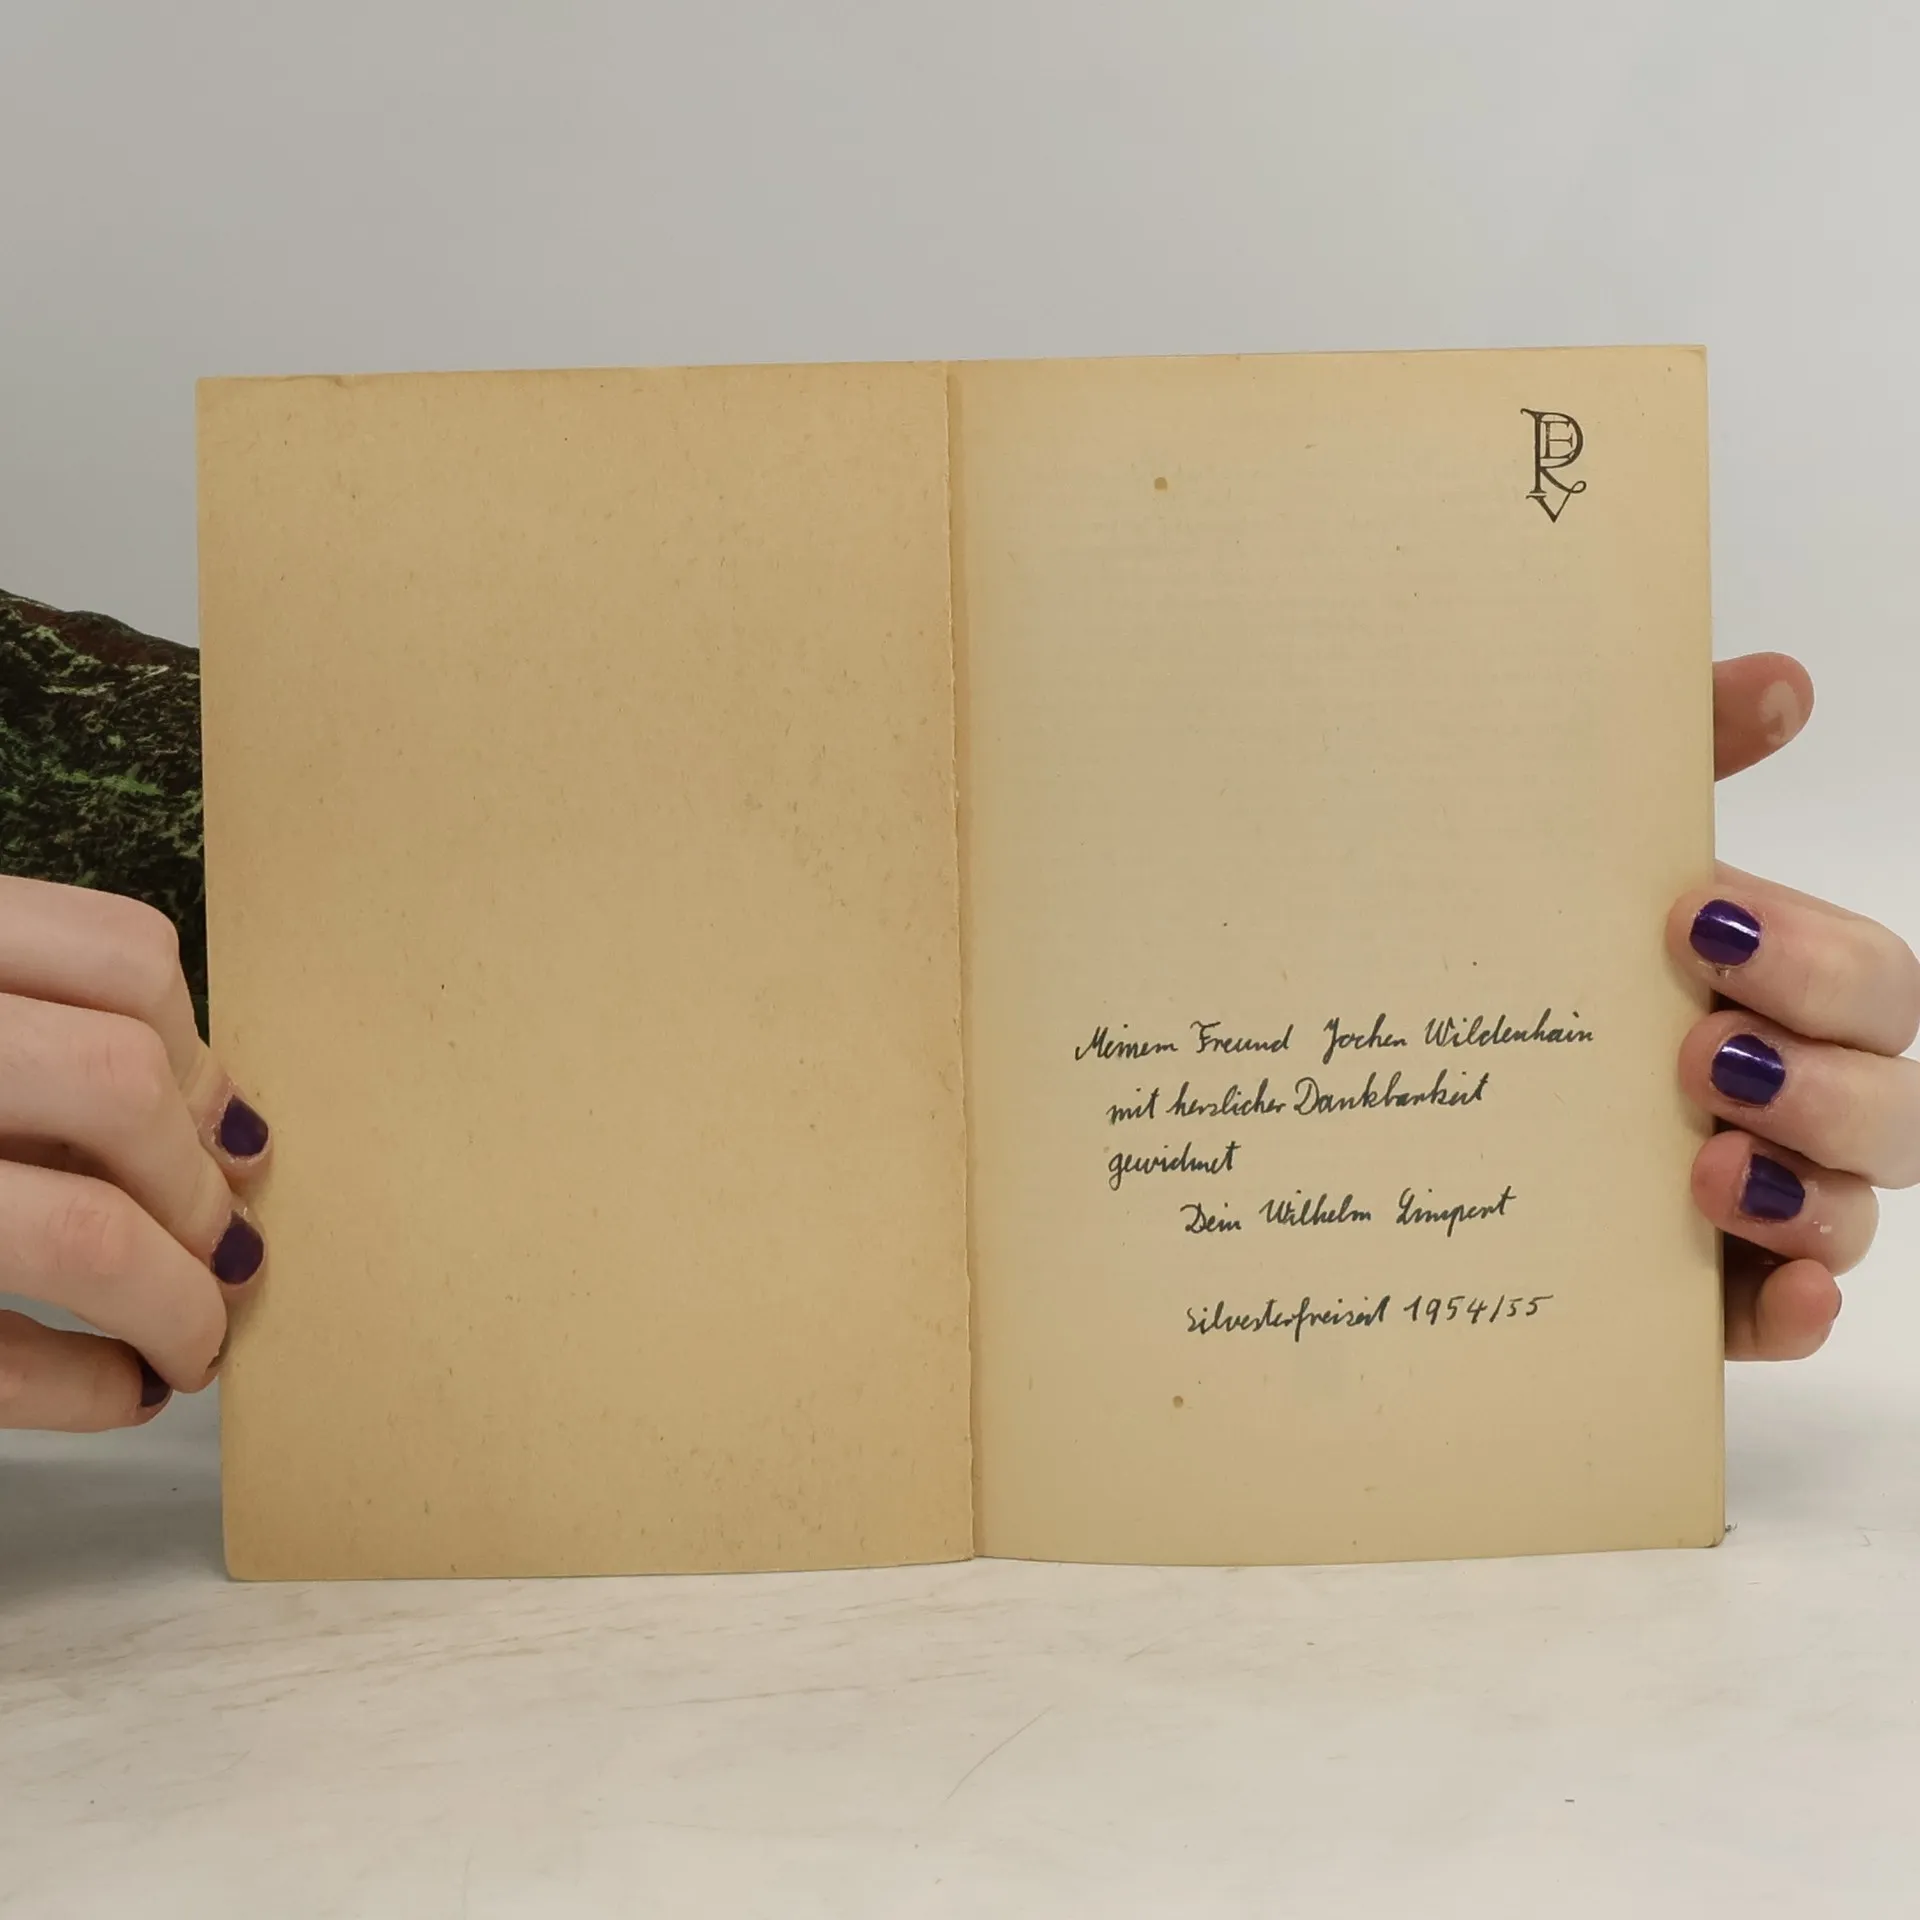 PERV
Meinem Freund Jochen Wildenhain
mit herzlicher Dankbarkeit
gewidmet
Dein Wilhelm Limpert
Silvesterfreizeit 1954/55